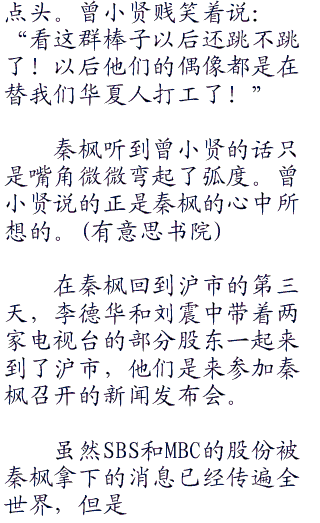 点头。曾小贤贱笑着说：
“看这群棒子以后还跳不跳
了！以后他们的偶像都是在
替我们华夏人打工了！”
秦枫听到曾小贤的话只
是嘴角微微弯起了弧度。曾
小贤说的正是秦枫的心中所
想的。(有意思书院)
在秦枫回到沪市的第三
天，李德华和刘震中带着两
家电视台的部分股东一起来
到了沪市，他们是来参加秦
枫召开的新闻发布会。
虽然SBS和MBC的股份被
秦枫拿下的消息已经传遍全
世界，但是